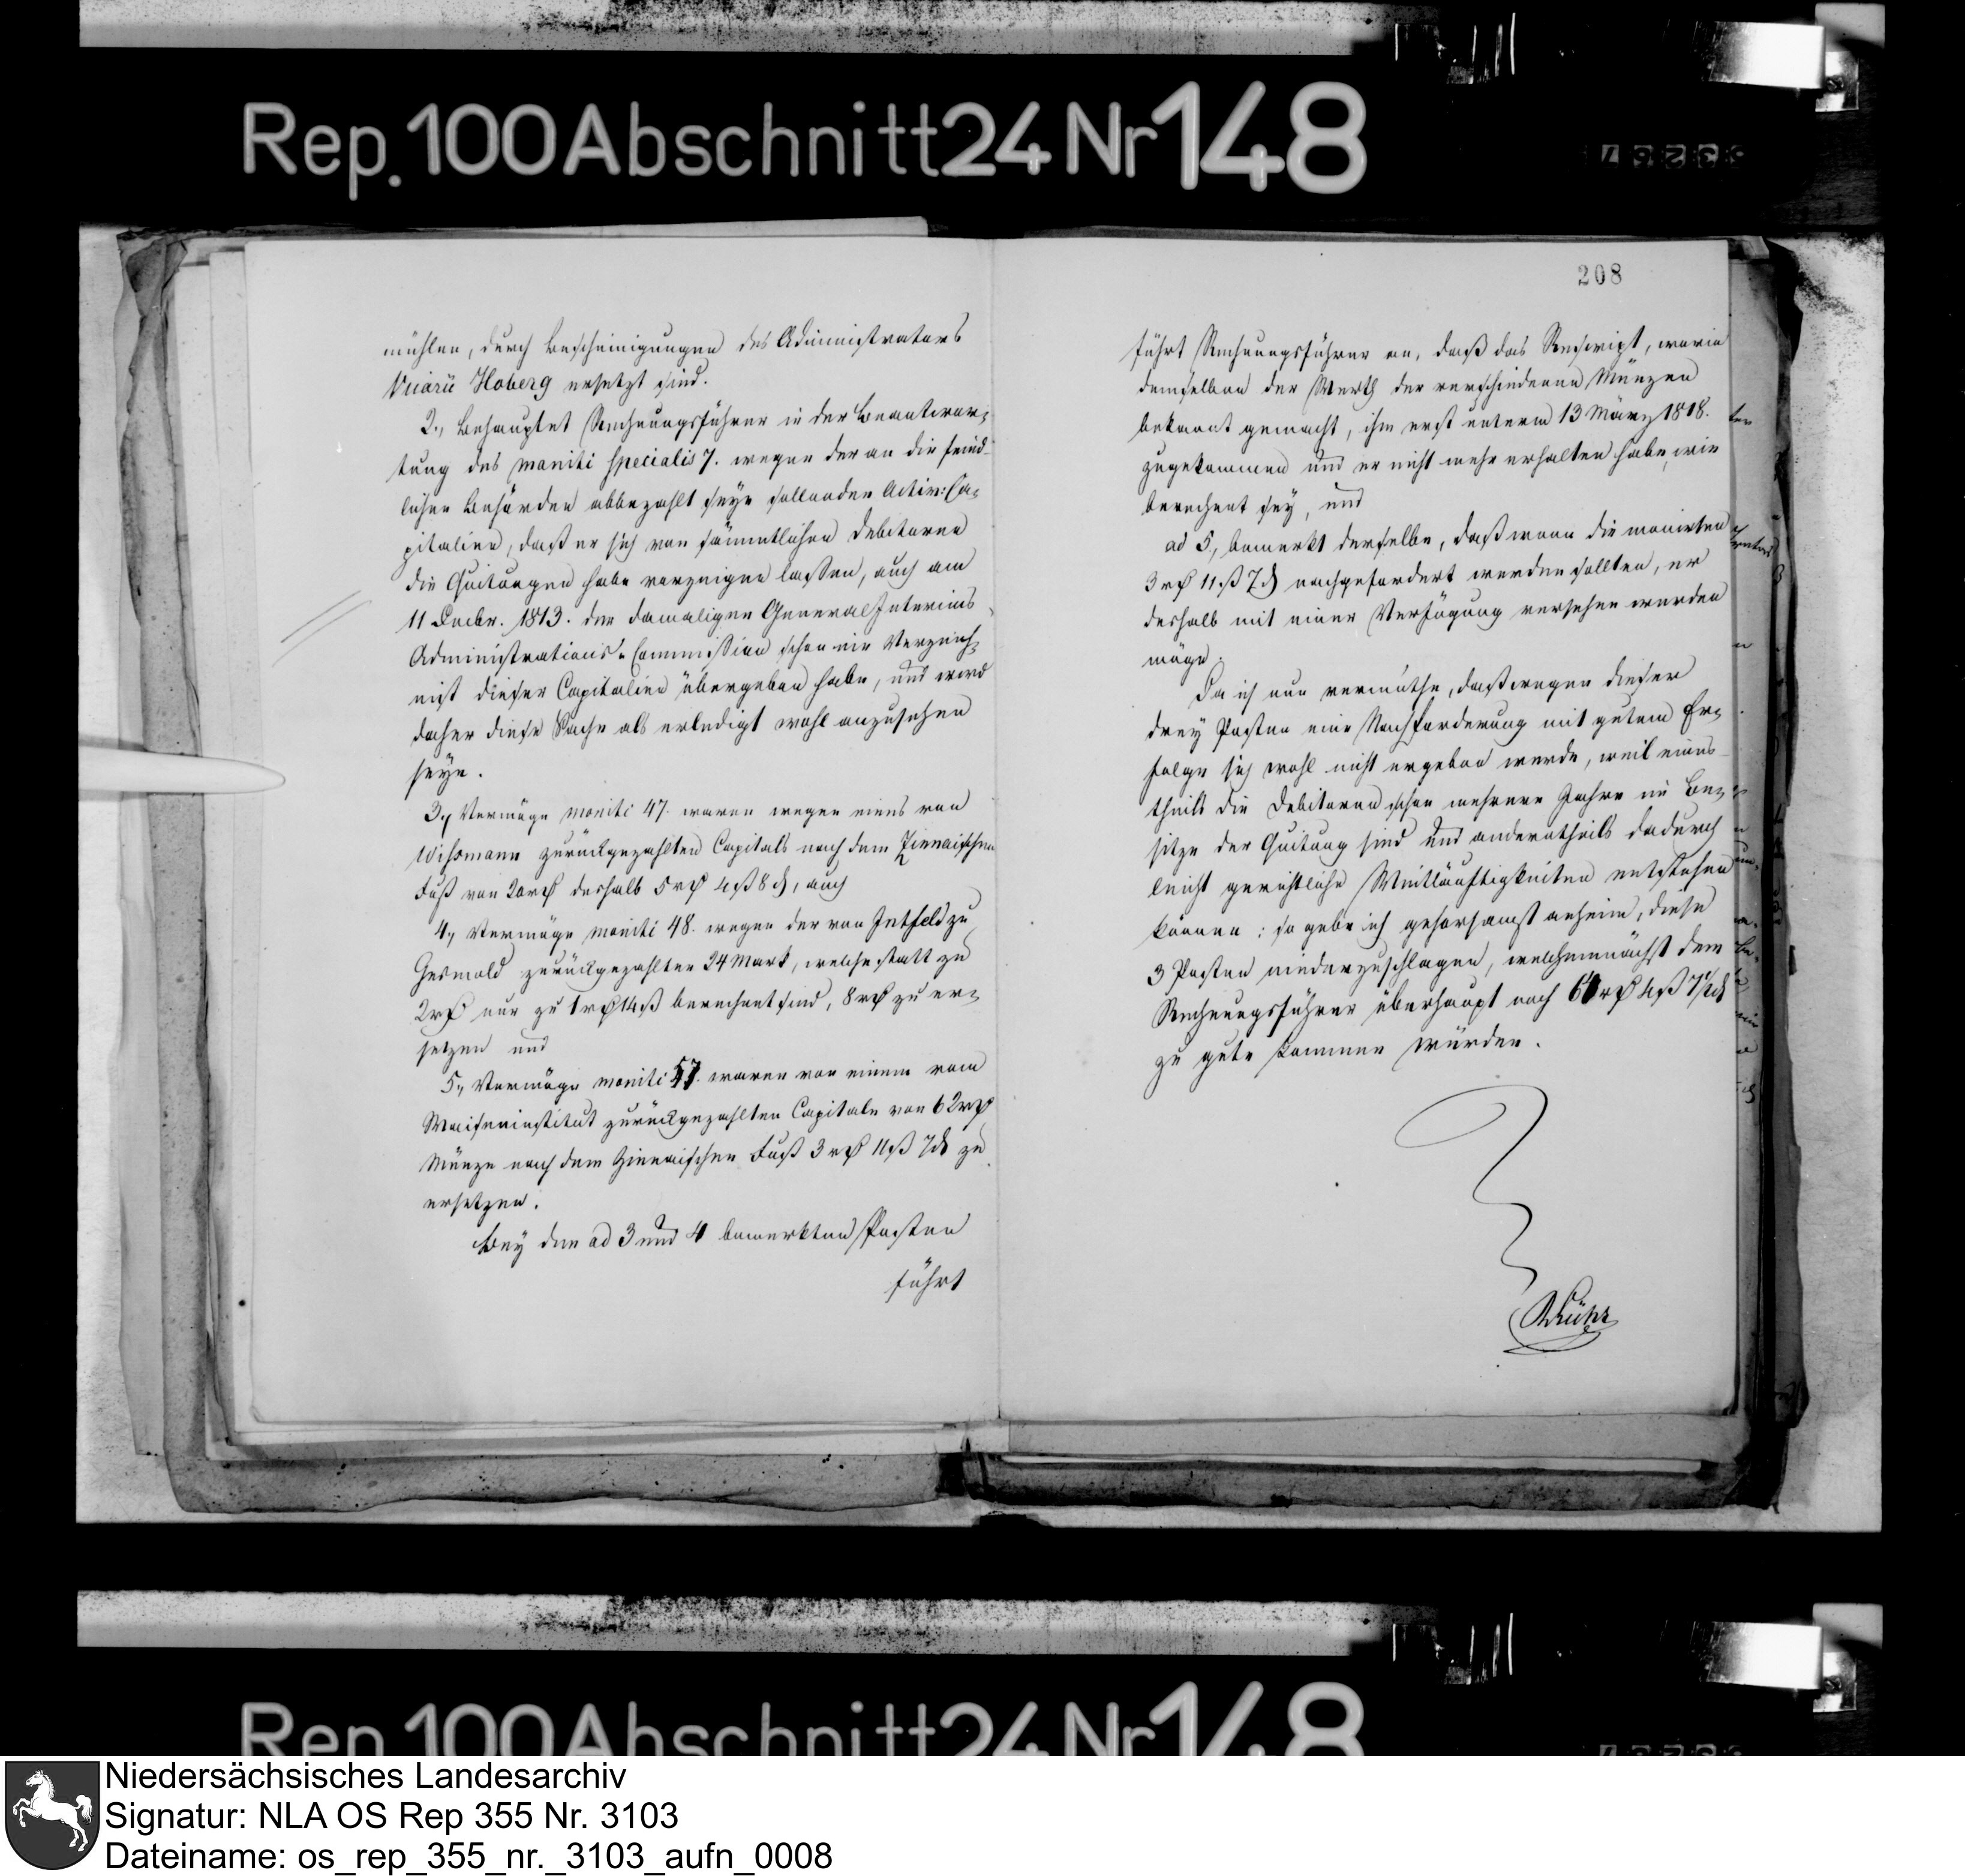 Rep. 100 Abschnitt 24 Nr 148
mühlen, durch Bescheinigungen des Administrators
Vicarii Hoberg ersetzt sind.
2., Behauptet Rechnungsführer in der Beantwor-
tung des moniti specialis 7. wegen der an die feind-
lichen Behörden abbezahlt seyn sollenden Activ: Ca-
pitalien, daß er sich von sämmtlichen Debitoren
die Quitungen habe vorzeigen lassen, auch am
11 Decbr. 1813. der damaligen General Interims-
Administrations-Commission schon ein Verzeich-
niß dieser Capitalien übergeben habe, und wird
daher diese Sache als erledigt wohl anzusehen
seyn.
3., Vermöge moniti 47. waren wegen eines von
Wissmann zurückgezahlten Capitals nach dem Zinnaischen
Fuß von 20 rß deshalb 5 rß 4 ß 8 d, auch
4., Vermöge moniti 48. wegen der von Intfeld zu
Gesmold zurückgezahlten 24 Mark, welche statt zu
2 rß nur zu 1 rß 14 ß berechnet sind, 8 rß zu er-
setzen und
5., Vermöge moniti 57. waren von einem vom
Waiseninstitut zurückgezahlten Capitale von 62 rß
Münze nach dem Zinnaischen Fuß 3 rß 11 ß 7 d zu
ersetzen.
Bey den ad 3 und 4 bemerkten Posten
führt
208
führt Rechnungsführer an, daß das Rescript, worin
demselben der Werth der verschiedenen Münzen
bekannt gemacht, ihm erst unterm 13 März 1818.
zugekommen und er nicht mehr erhalten habe, wie
berechnet sey, und
ad 5., bemerkt derselbe, daß wenn die monirten
3 rß 11 ß 7 d nachgefordert werden sollten, er
deshalb mit einer Verfügung versehen werden
möge.
Da ich nun vermuthe, daß wegen dieser
drey Posten eine Nachforderung mit gutem Er-
folge sich wohl nicht ergeben werde, weil eines
theils die Debitoren schon mehrere Jahre im Be-
sitze der Quitung sind und anderntheils dadurch
leicht gerichtliche Weitläuftigkeiten entstehen
können: so gebe ich gehorsamst anheim, diese
3 Posten niederzuschlagen, welchemnächst dem
Rechnungsführer überhaupt noch rß 4 ß 7 1/2 d
zu gute kommen würden.
Rep. 100 Abschnitt 24 Nr 148
Niedersächsisches Landesarchiv
Signatur: NLA OS Rep 355 Nr. 3103
Dateiname: os_rep_355_nr._3103_aufn_0008